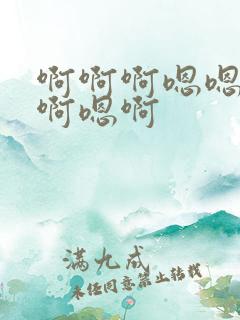 啊啊啊嗯嗯
啊嗯啊
满九成
未经同意禁止转载